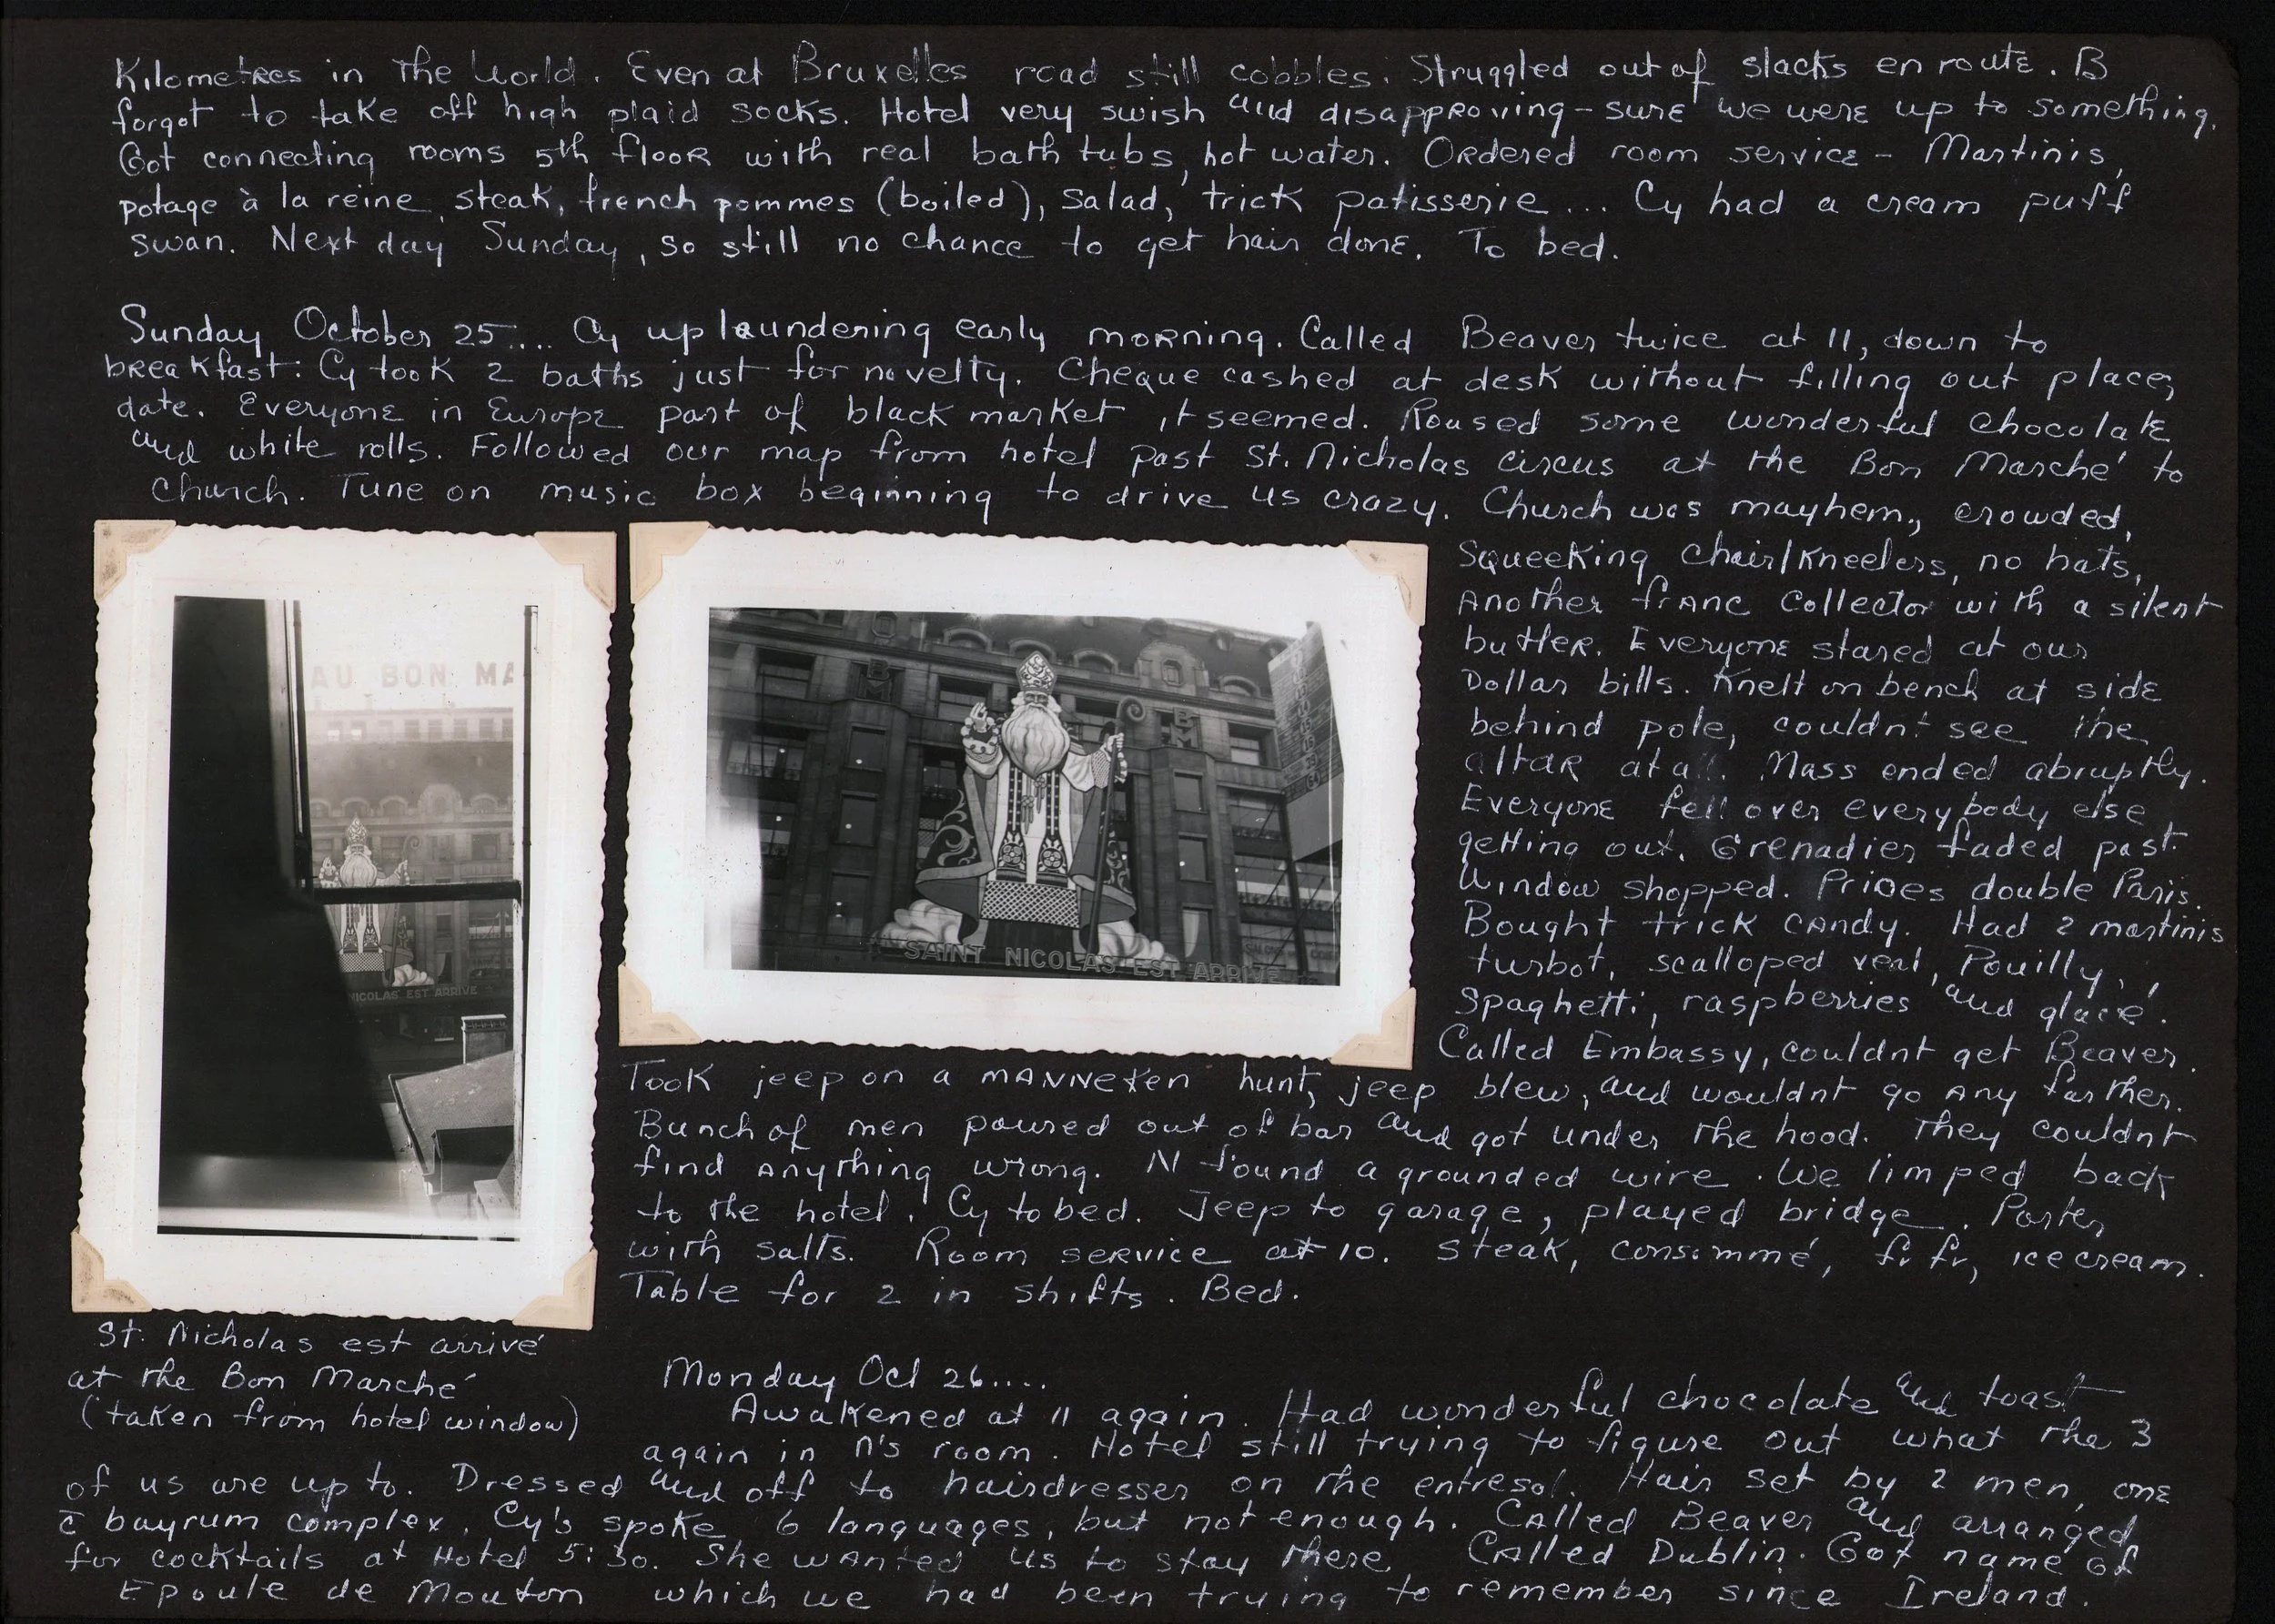 Kilometres in the World. Even at Bruxelles road still cobbles. Struggled out of slacks en route. B
forgot to take off high plaid socks. Hotel very swish and disapproving - sure we were up to something.
Got connecting rooms 5th floor with real bath tubs, hot water. Ordered room service - Martinis,
potage à la reine, steak, french pommes (boiled), salad, trick patisserie... Cy had a cream puff
swan. Next day Sunday, so still no chance to get hair done. To bed.
Sunday October 25.... Cy up laundering early morning. Called Beaver twice at 11, down to
breakfast: Cy took 2 baths just for novelty. Cheque cashed at desk without filling out place,
date. Everyone in Europe part of black market it seemed. Roused some wonderful chocolate
and white rolls. Followed our map from hotel past St. Nicholas circus at the Bon Marché to
Church. Tune on music box beginning to drive us crazy. Church was mayhem, crowded,
squeeking chair/kneelers, no hats,
another franc collector with a silent
butler. Everyone stared at our
Dollar bills. Knelt on bench at side
behind pole, couldn't see the
altar at all. Mass ended abruptly.
Everyone fell over everybody else
getting out. Grenadier faded past.
Window shopped. Prices double Paris.
Bought trick candy. Had 2 martinis
turbot, scalloped veal, Pouilly,
Spaghetti, raspberries and glacé.
Called Embassy, couldnt get Beaver.
Took jeep on a manneken hunt, jeep blew, and wouldnt go any farther.
Bunch of men poured out of bar and got under the hood. They couldnt
find anything wrong. N found a grounded wire. We limped back
to the hotel. Cy to bed. Jeep to garage, played bridge. Porter
with salts. Room service at 10. Steak, consommé, fr fr, ice cream.
Table for 2 in shifts. Bed.
AU BON MA
NICOLAS EST ARRIVÉ
BM
BM
SAINT NICOLAS EST ARRIVÉ
St. Nicholas est arrivé
at the Bon Marché
(taken from hotel window)
Monday Oct 26....
Awakened at 11 again. Had wonderful chocolate and toast
again in N's room. Hotel still trying to figure out what the 3
of us are up to. Dressed and off to hairdresser on the entresol. Hair set by 2 men, one
c̄ bayrum complex. Cy's spoke 6 languages, but not enough. Called Beaver and arranged
for cocktails at Hotel 5:30. She wanted us to stay there. Called Dublin. Got name of
Epoule de Mouton which we had been trying to remember since Ireland.